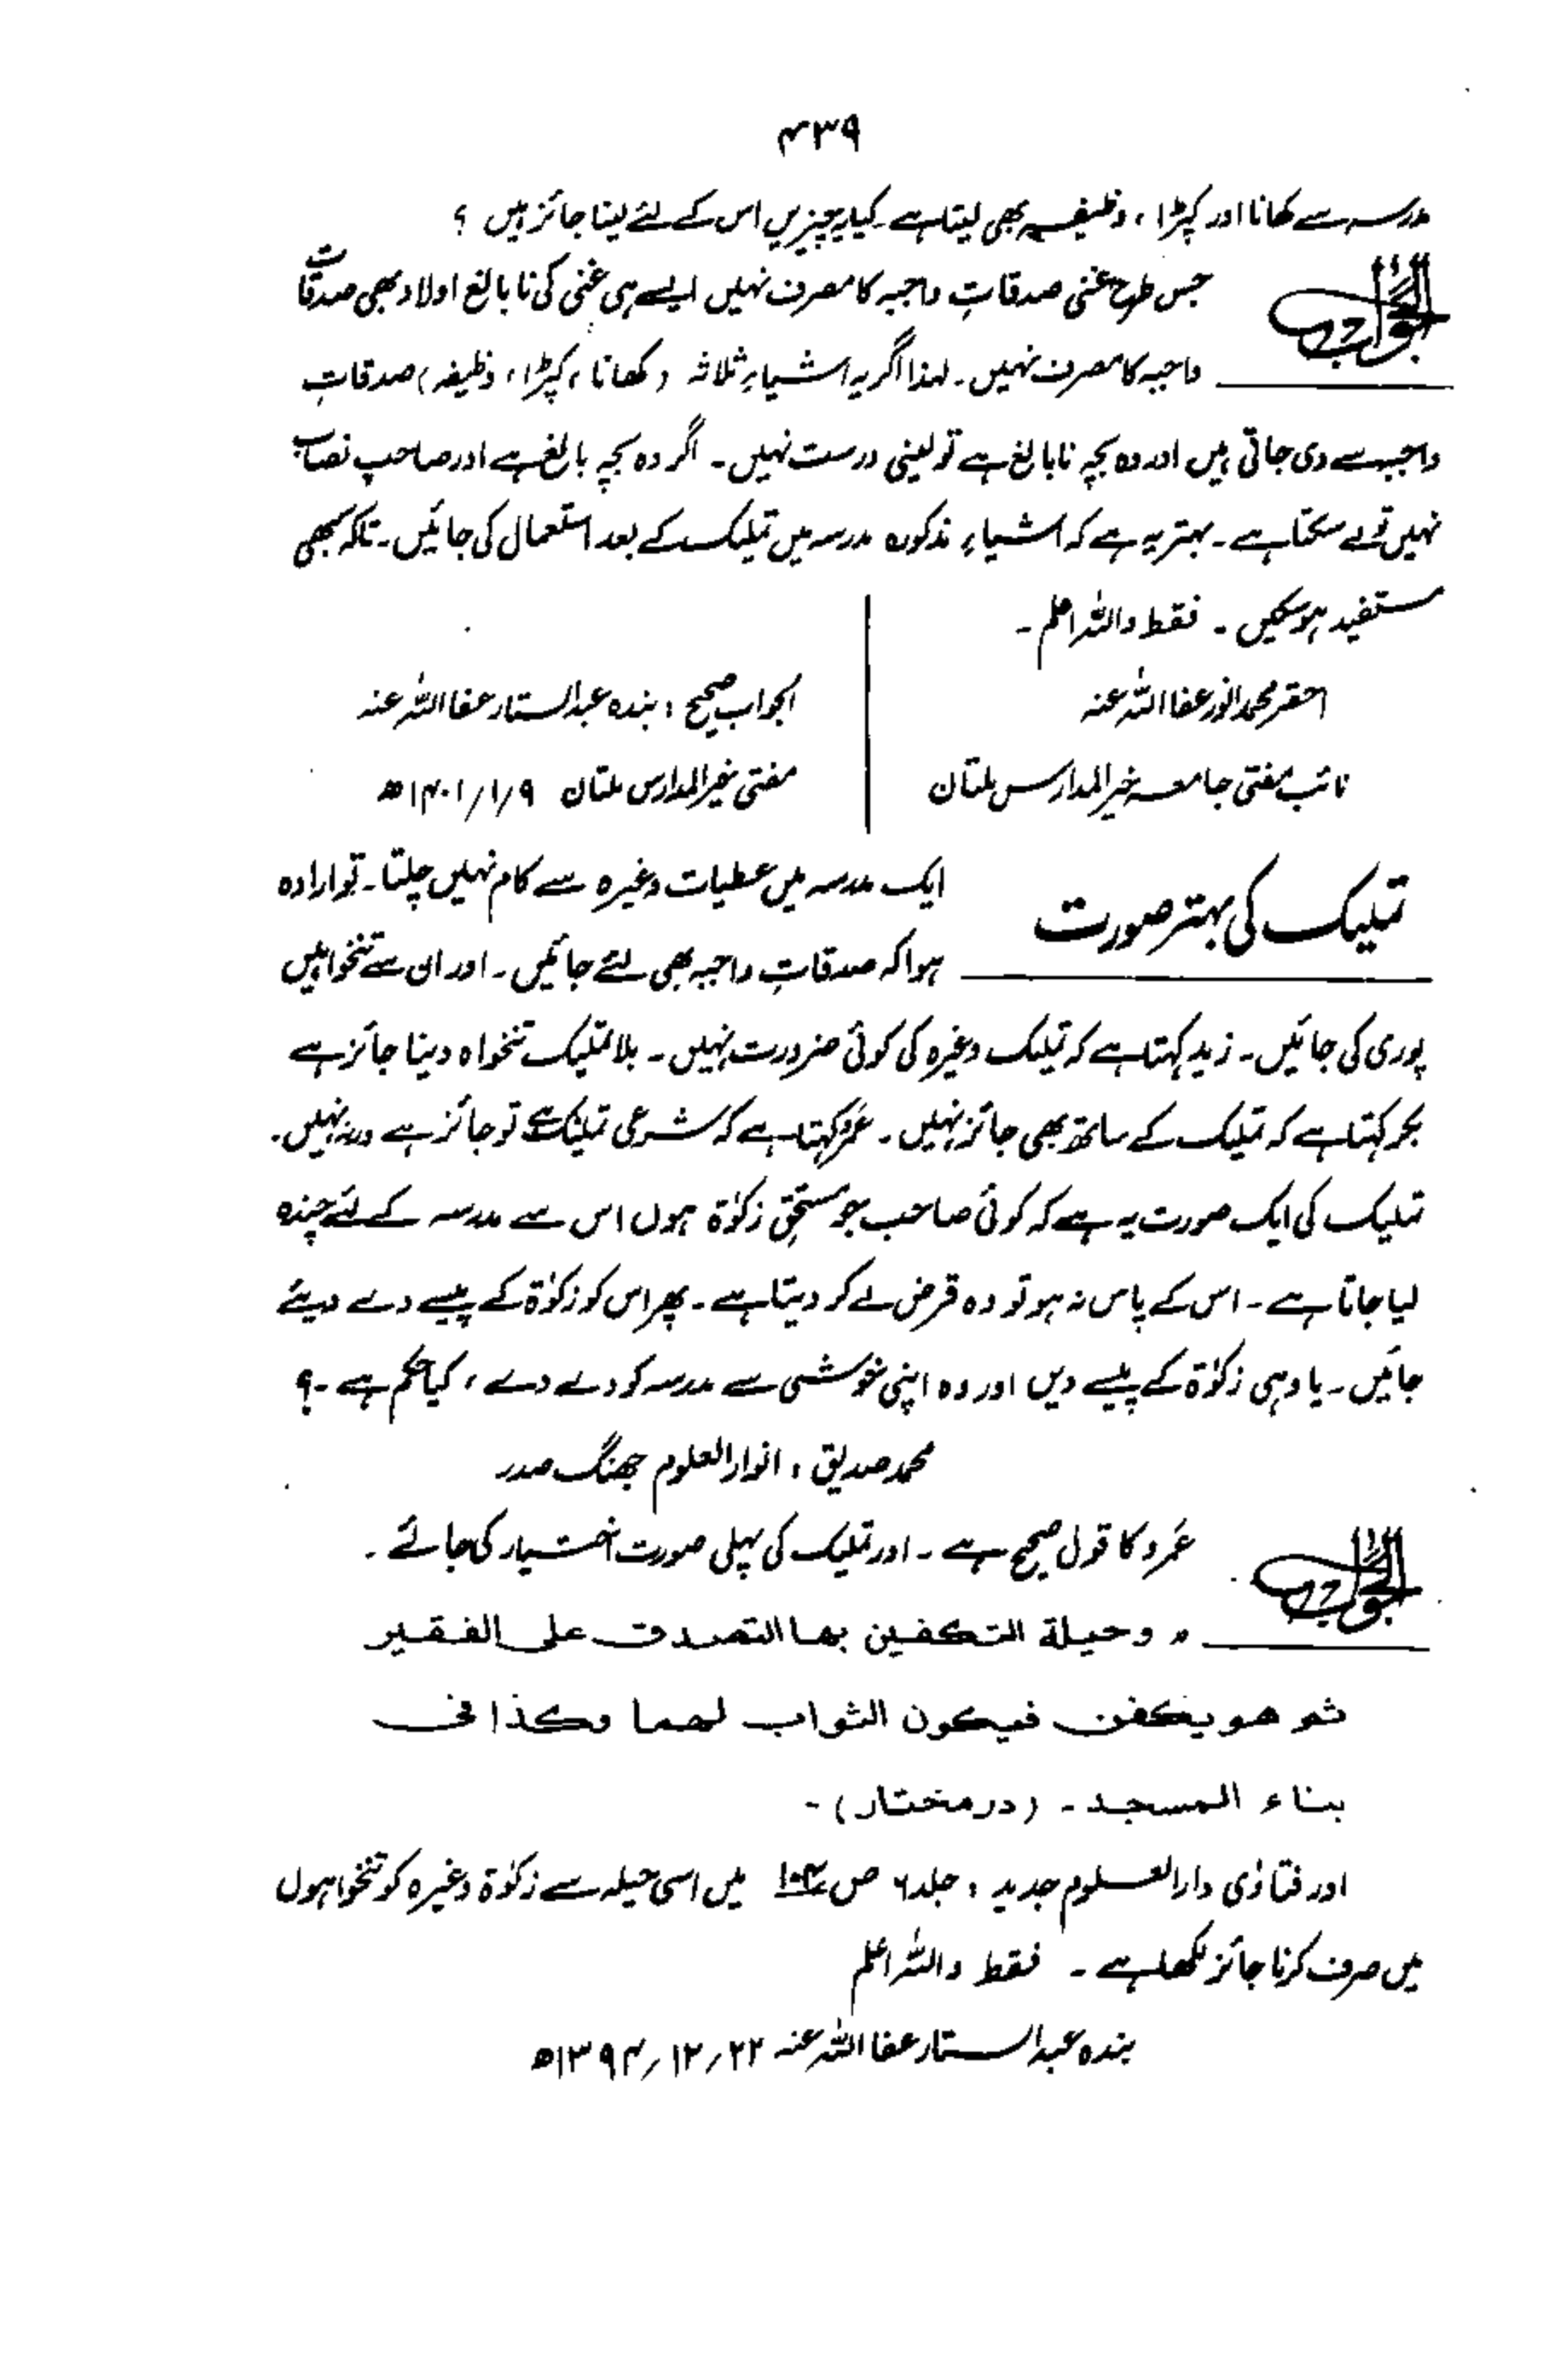 ۴۳۹
مدرسہ سے کھانا اور کپڑا، وظیفہ بھی لیتا ہے۔ کیا یہ چیزیں اس کے لئے لینا جائز ہیں ؟
الجواب
جس طرح غنی صدقاتِ واجبہ کا مصرف نہیں ایسے ہی غنی کی نابالغ اولاد بھی صدقات
واجبہ کا مصرف نہیں۔ لہٰذا اگر یہ اشیاءِ ثلاثہ (کھانا، کپڑا، وظیفہ) صدقاتِ
واجبہ سے دی جاتی ہیں اور وہ بچہ نابالغ ہے تو لینی درست نہیں۔ اگر وہ بچہ بالغ ہے اور صاحبِ نصاب
نہیں تو لے سکتا ہے۔ بہتر یہ ہے کہ اشیاءِ مذکورہ مدرسہ میں تملیک کے بعد استعمال کی جائیں۔ تاکہ سبھی
مستفید ہو سکیں۔ فقط واللہ اعلم۔
احقر محمد انور عفا اللہ عنہ
نائب مفتی جامعہ خیر المدارس ملتان
الجواب صحیح : بندہ عبدالستار عفا اللہ عنہ
مفتی خیر المدارس ملتان ۹/۱/۱۴۰۱ھ
تملیک کی بہتر صورت
ایک مدرسہ میں عطیات وغیرہ سے کام نہیں چلتا۔ تو ارادہ
ہوا کہ صدقاتِ واجبہ بھی لئے جائیں۔ اور ان سے تنخواہیں
پوری کی جائیں۔ زید کہتا ہے کہ تملیک وغیرہ کی کوئی ضرورت نہیں۔ بلا تملیک تنخواہ دینا جائز ہے
بکر کہتا ہے کہ تملیک کے ساتھ بھی جائز نہیں۔ عمرو کہتا ہے کہ شرعی تملیک سے تو جائز ہے ورنہ نہیں۔
تملیک کی ایک صورت یہ ہے کہ کوئی صاحب جو مستحقِ زکوٰۃ ہوں اس سے مدرسہ کے لئے چندہ
لیا جاتا ہے۔ اس کے پاس نہ ہو تو وہ قرض لے کر دیتا ہے۔ پھر اس کو زکوٰۃ کے پیسے دے دیئے
جائیں۔ یا وہی زکوٰۃ کے پیسے دیں اور وہ اپنی خوشی سے مدرسہ کو دے دے، کیا حکم ہے۔؟
محمد صدیق، انوار العلوم جھنگ صدر
الجواب
عمرو کا قول صحیح ہے۔ اور تملیک کی پہلی صورت اختیار کی جائے۔
" وحيلة التكفين بها التصدق على الفقير
ثم هو يكفن فيكون الثواب لهما وكذا فى
بناء المسجد۔ (درمختار)۔
اور فتاوٰی دارالعلوم جدید، جلد ۶ ص۱۰۴ میں اسی حیلہ سے زکوٰۃ وغیرہ کو تنخواہوں
میں صرف کرنا جائز لکھا ہے۔ فقط واللہ اعلم
بندہ عبدالستار عفا اللہ عنہ ۲۲/۱۲/۱۳۹۴ھ